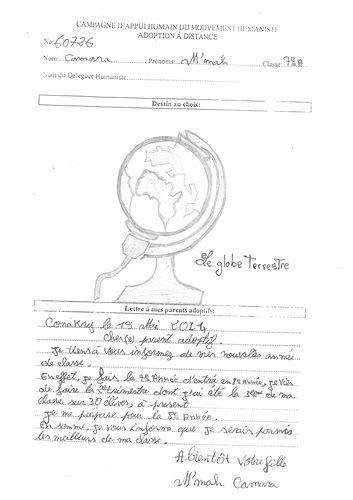 CAMPAGNE D'APPUI HUMAIN DU MOUVEMENT HUMANISTE
ADOPTION À DISTANCE
No: 60726
Nom: Camara Prénoms: M'mah Classe: 7e
Nom du Délégué Humaniste:
Dessin au choix:
Le globe terrestre
Lettre à mes parents adoptifs:
Conakry le 19 Mai 2014
Cher(e) parent adoptif
Je tiens à vous informez de mes nouvelles année
de classe.
En effet, je fais la Année d'entrée en Année, je viens
de faire la trimestre dont j'ai été la de ma
classe sur 30 élèves, à présent
Je me prépare pour la 8e Année.
En somme, je vous informe que je serais parmis
les meilleurs de ma classe.
A bientôt Votre fille
M'mah Camara